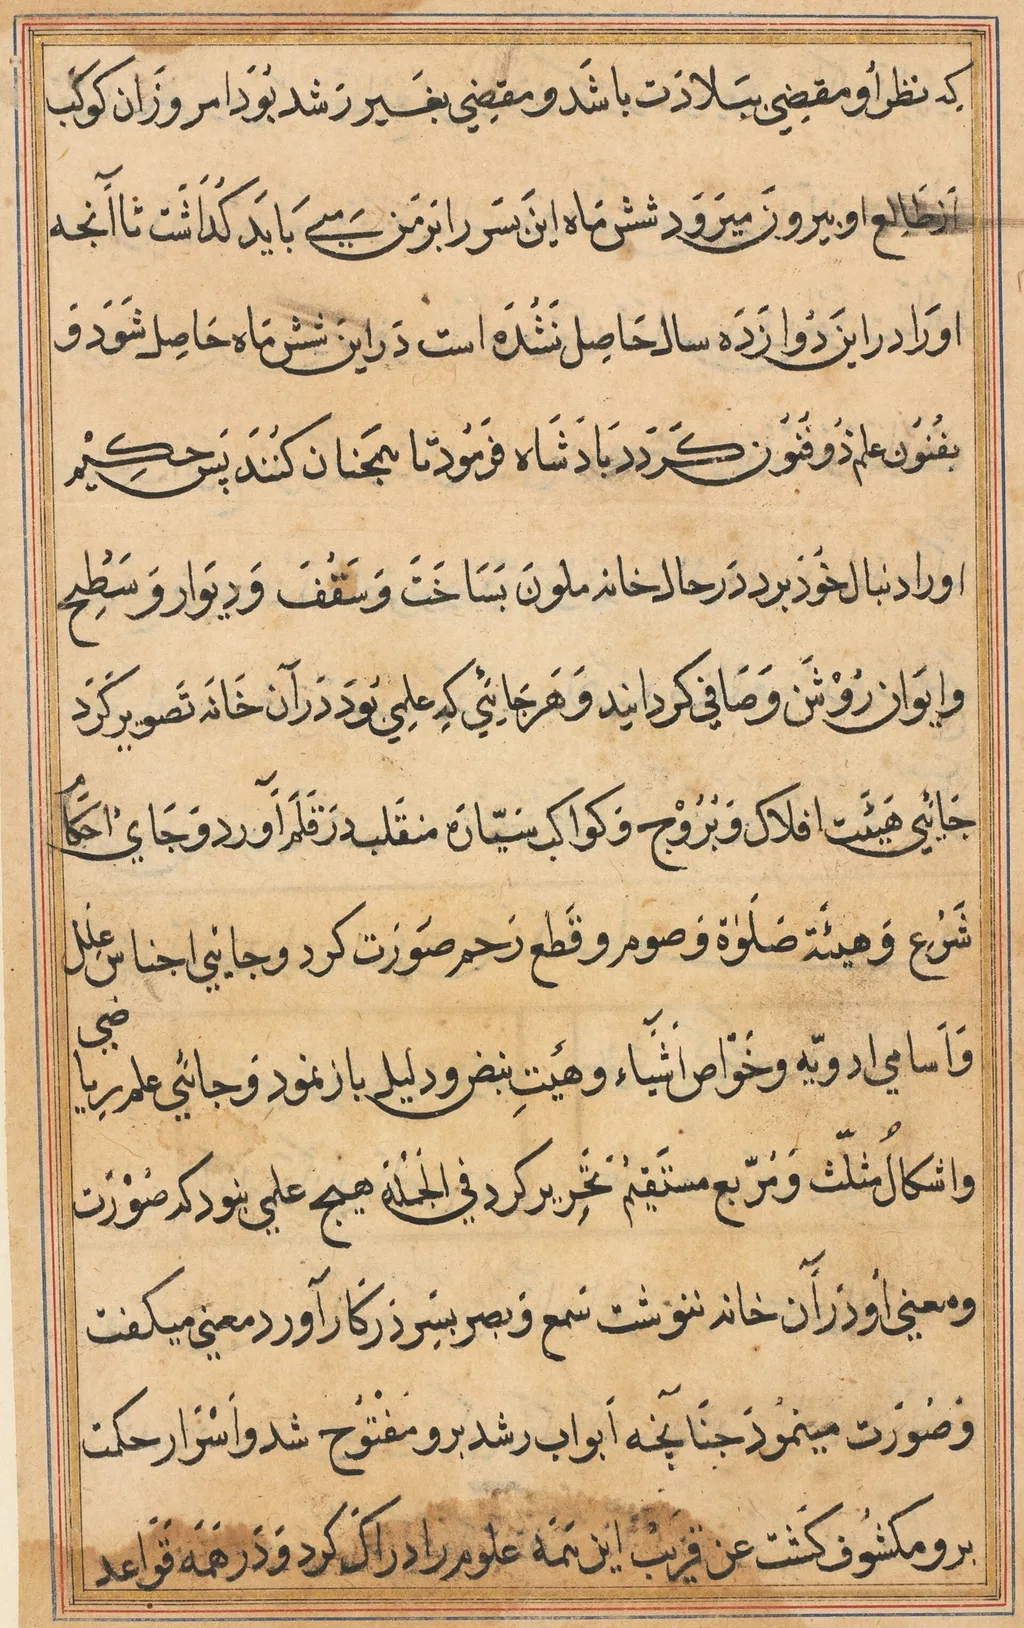 که نظر أو مقضِي ببَلادَت باشَد و مقضِي بغَیر رَشد بُوَد امروز زَان کوکَب
اَز طَالِع او بیرون میرَوَد شش مَاه اینَ بسَر رابَر مَن بَایَد کذَاشَت تا آنجه
اورَا در اینَ دُوازدَه سال حَاصِل نَشُدَه است دَر اینَ شش مَاه حَاصِل شوَد وَ
بفُنوَن علم ذُو فَنُون کَردَد بَادَشَاه فرَمُود تا همَجنان کنُند پَس حکِیْم
اورا دنبال خُوذ برد دَر حال خانه ملون بسَاخَتَ وَ سَقُفَ وَ دِیَوار وَ سَطِح
و ایوَان رُوْشَن وَ صَافي کردانید وَ هَر جَائِي که علِمِي بُوَدَ دَر آن خَانَه تَصویر کَرَد
جَائِي هَیئَت افلاک وَ بُرُوْج وَ کواکب سَیّارَه منقَلب دَر قلَم آورد وَ جَاي احکَام
شَرْع وَ هیئَة صَلَوٰة وَ صوم و قَطع رَحم صوَرَت کرد و جائي اجناس عِلَل
وَ اَسَامي ادویّه و خُوَّاص أَشیَاء و هیئتِ نبض و دلیل باز نمود وَ جائي علم رِیاضي
و اشکالُ مثلّث وَ مُرّبع مستَقیمُ تحَرِیر کرد في الجُملَة هیج علمي نبود که صُوْرَت
و معني أو دَر آن خانه ننوشت سَمع وَ بصر بسِر دَر کار آورد معني میکفت
وَ صُورَت مینمُودَ جنَانجه أبواب رشد برو مَفْتُوح شد و اَسْرَار حکمت
برو مکشُوف کشَت عن قرِیَبْ این همَه علوم را ادراک کرد وَ دَر همَه قوَاعد